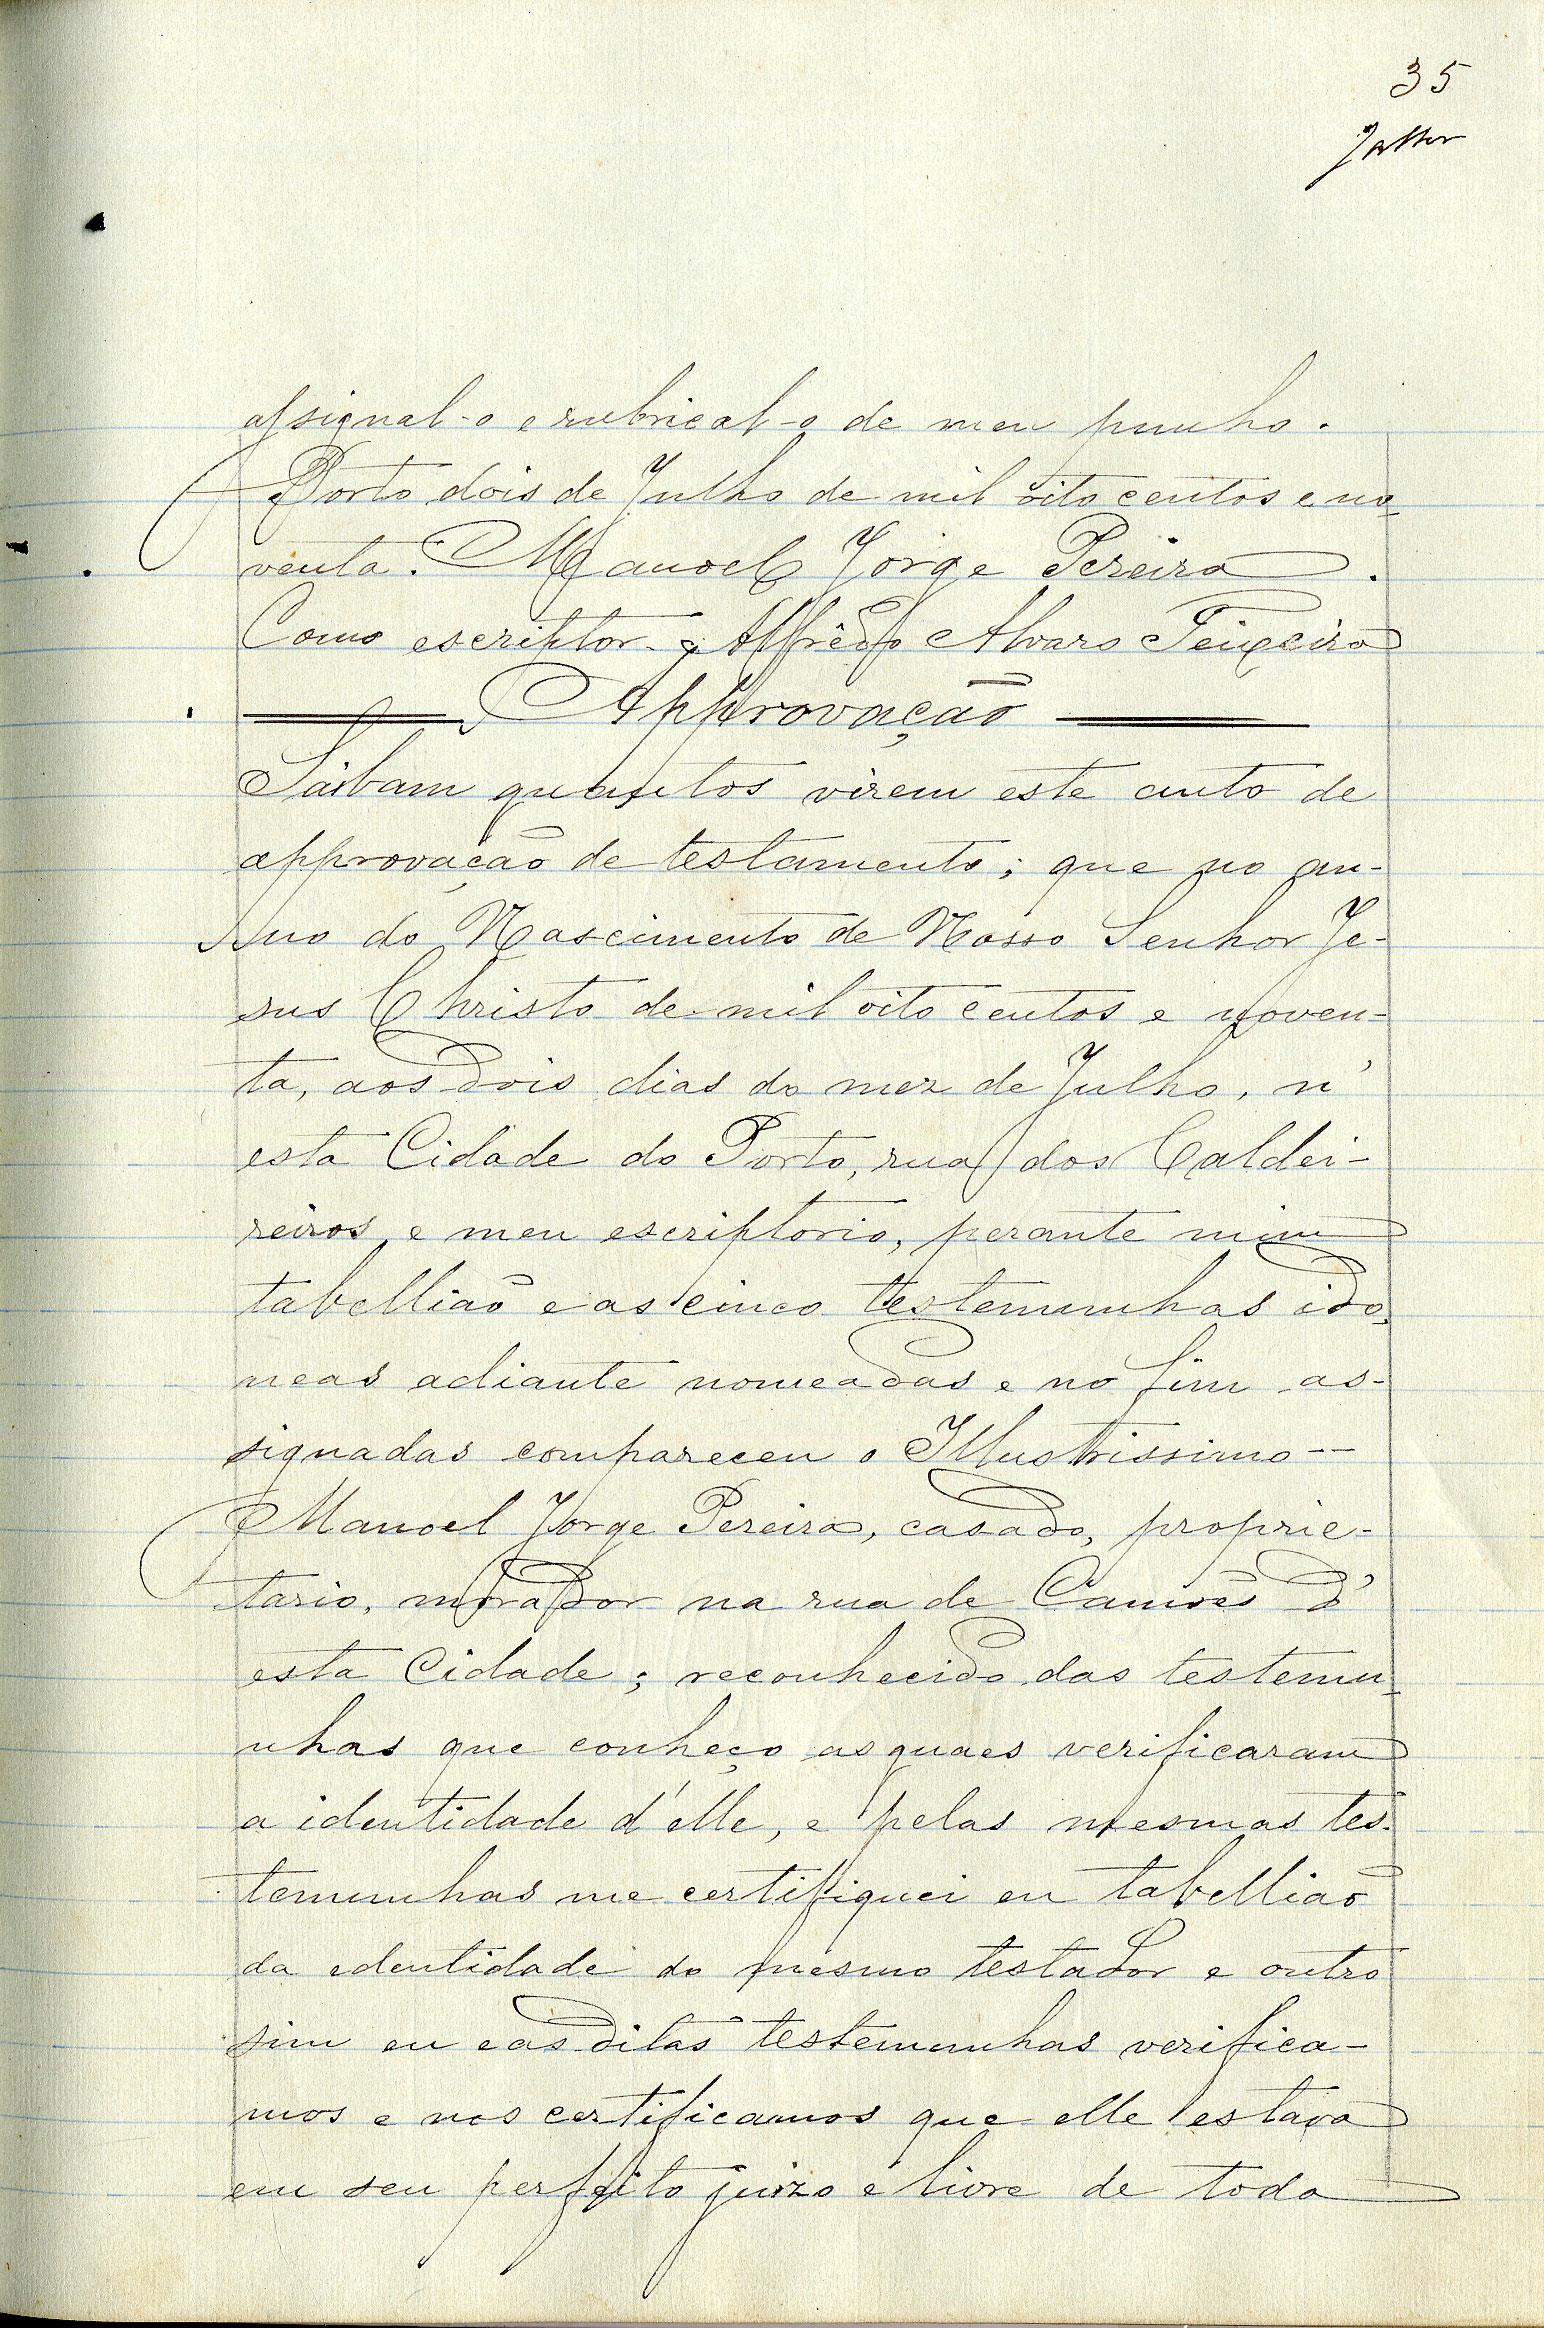 35
assignal-o e rubrical-o de meu punho.
Porto dois de Julho de mil oito centos e no-
venta. Manoel Jorge Pereira.
Como escriptor - Alfrêdo Alvaro Teixeira
Approvação
Saibam quantos virem este auto de
approvação de testamento; que no an-
no do Nascimento de Nosso Senhor Je-
sus Christo de mil oito centos e noven-
ta, aos dois dias do mez de Julho, n'
esta Cidade do Porto, rua dos Caldei-
reiros, e meu escriptorio, perante mim
tabellião e as cinco testemunhas ido-
neas adiante nomeadas e no fim as-
signadas compareceu o Illustrissimo --
Manoel Jorge Pereira, casado, proprie-
tario, morador na rua de Camões d'
esta Cidade; reconhecido das testemu-
nhas que conheço as quaes verificaram
a identidade d'elle, e pelas mesmas tes-
temunhas me certifiquei eu tabellião
da edentidade do mesmo testador e outro
sim eu e as ditas testemunhas verifica-
mos e nos certificamos que elle estava
em seu perfeito juizo e livre de toda